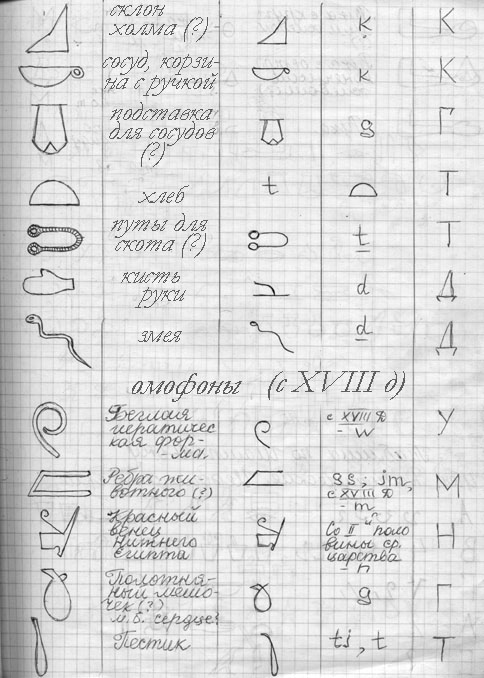 склон
холма (?) ḳ К
сосуд, корзи-
на с ручкой k К
подставка
для сосудов g Г
(?)
хлеб t Т
путы для
скота (?) ṯ Т
кисть
руки d Д
змея ḏ Д
омофоны (с XVIII д)
Беглая
иератичес
кая фор-
ма.
с XVIII д
- w У
Ребра жи-
вотного (?)
gs; jm,
с XVIII д
- m М
Красный
венец
Нижнего
Египта
Со II-й поло
вины ср.
царства
- n Н
Полотня-
ный мешо-
чек (?)
м.б. сердце? g Г
Пестик tj, t Т